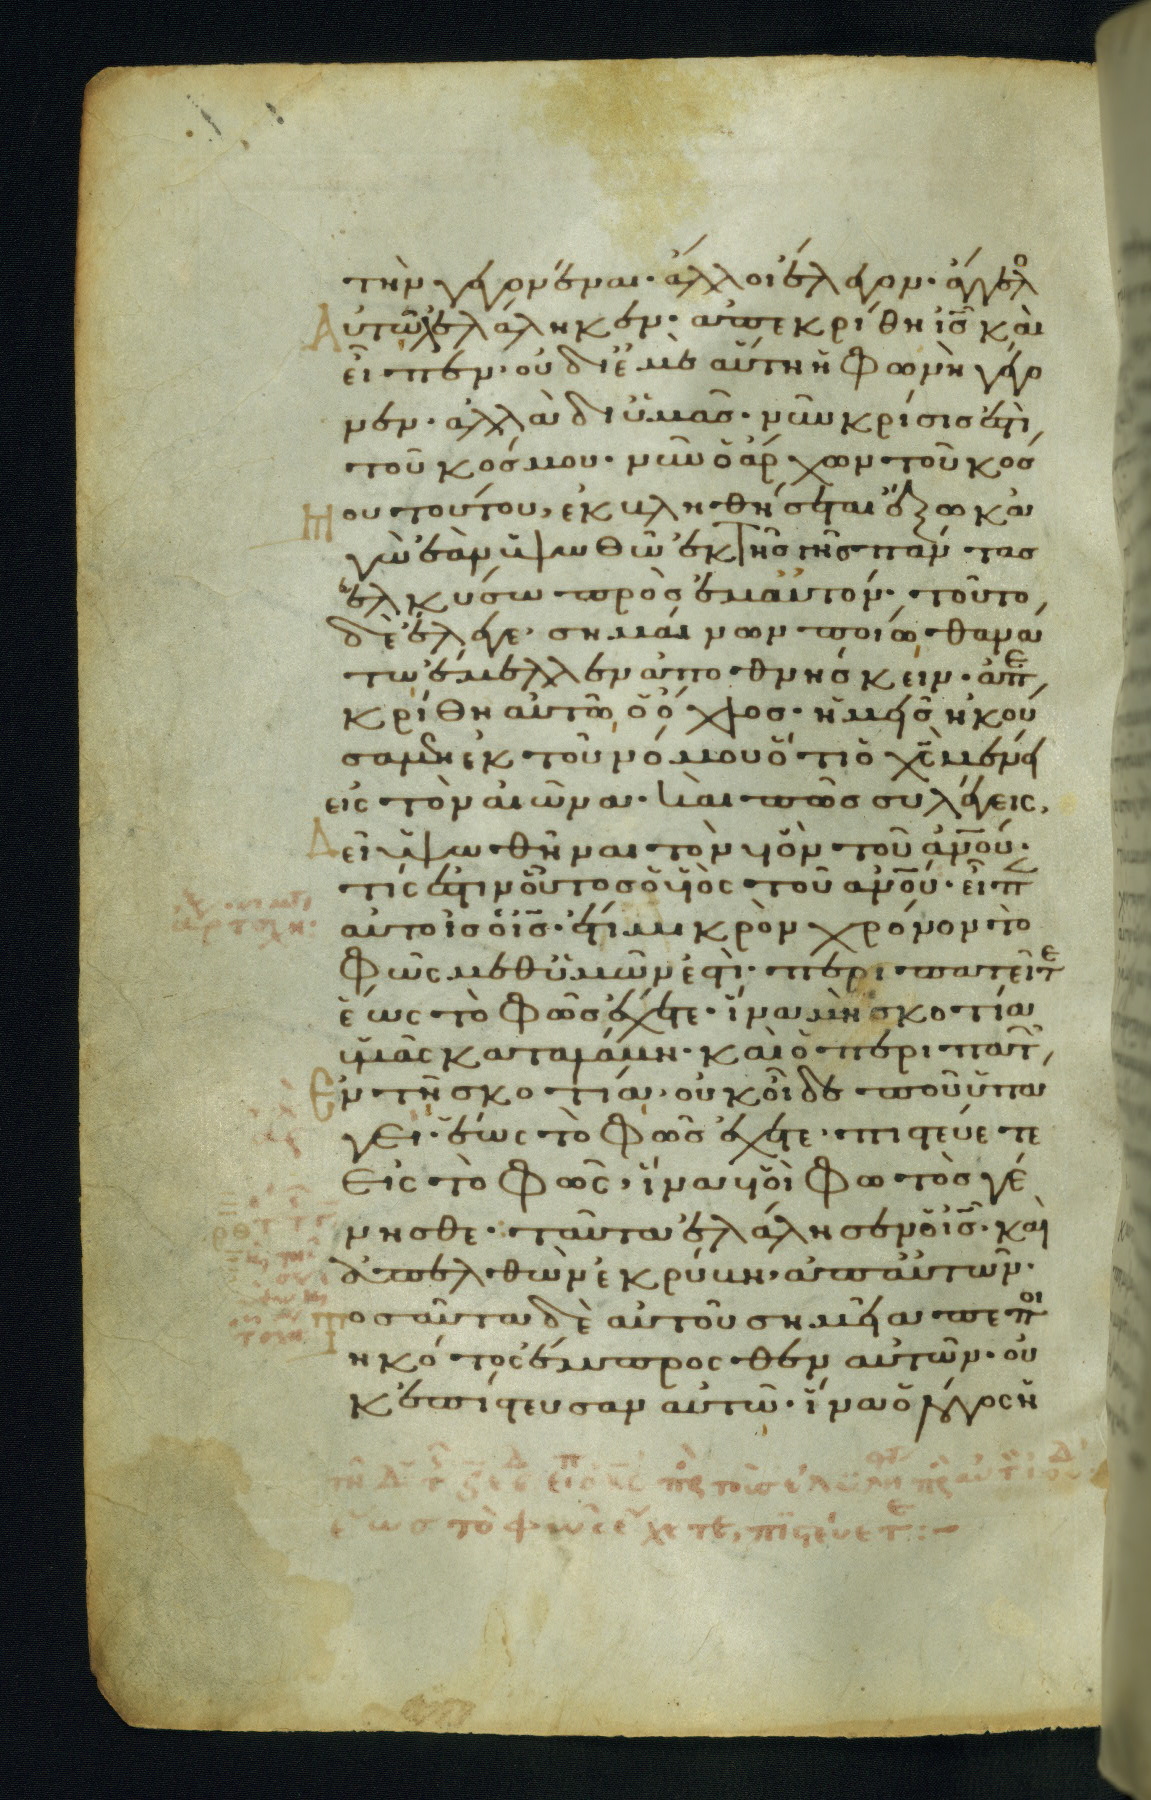 την γεγονέναι· ἄλλοι ἔλεγον· ἄγγελο
Αυτῶ λελάληκεν· ἀπεκρίθη ις̅ καὶ
εἶπεν· οὐ δι ἐμὲ αὕτη ἡ φωνὴ γέγο
νεν· ἀλλὰ δι ὑμᾶς· νῦν κρίσις ἐστὶ
τοῦ κόσμου· νῦν ὁ ἄρχων τοῦ κόσ
Μου τούτου, ἐκβληθήσεται ἔξω κα
γὼ ἐὰν ὑψωθῶ ἐκ τῆς γῆς πάντας
ἑλκύσω πρὸς ἐμαυτόν· τοῦτο
δὲ ἔλεγε· σημαίνων ποίω θανα
τω ἔμελλεν ἀποθνήσκειν· ἀπε
κρίθη αὐτῶ ὁ ὄχλος· ἡμεῖς ἠκού
σαμεν ἐκ τοῦ νόμου ὅτι ὁ χς̅ μένει
εἰς τὸν αἰῶνα· καὶ πῶς συ λέγεις,
Δεῖ ὑψωθῆναι τὸν υἱὸν τοῦ ἀν̅ου·
τίς ἐστιν οὗτος ὁ υἱὸς τοῦ ἀν̅ου· εἶπ
αὐτοῖς ὁ ις̅· ἔτι μικρὸν χρόνον τὸ
Φῶς μεθ ὑμῶν ἐστὶ· περιπατεῖτε
ἕως τὸ Φῶς ἔχετε· ἵνα μὴ σκοτία
ὑμᾶς καταλάβη· καὶ ὁ περιπατ
Ἐν τῆ σκοτία· οὐκ οἶδε ποῦ ὑπα
γει· ἕως τὸ Φῶς ἔχετε· πιστεύετε
Εἰς τὸ Φῶς, ἵνα υἱοὶ Φωτὸς γέ
νησθε· ταῦτα ἐλάλησεν ὁ ις̅· καὶ
ἀπελθὼν ἐκρύβη· ἀπ αὐτῶν·
Τοσαῦτα δὲ αὐτοῦ σημεῖα πεποι
ηκότος ἔμπροσθεν αὐτῶν· οὐ
κ ἐπίστευσαν αὐτῶ· ἵνα ὁ λόγος ἡ
ἕως τὸ φῶς ἔχετε, πιστεύετε:–